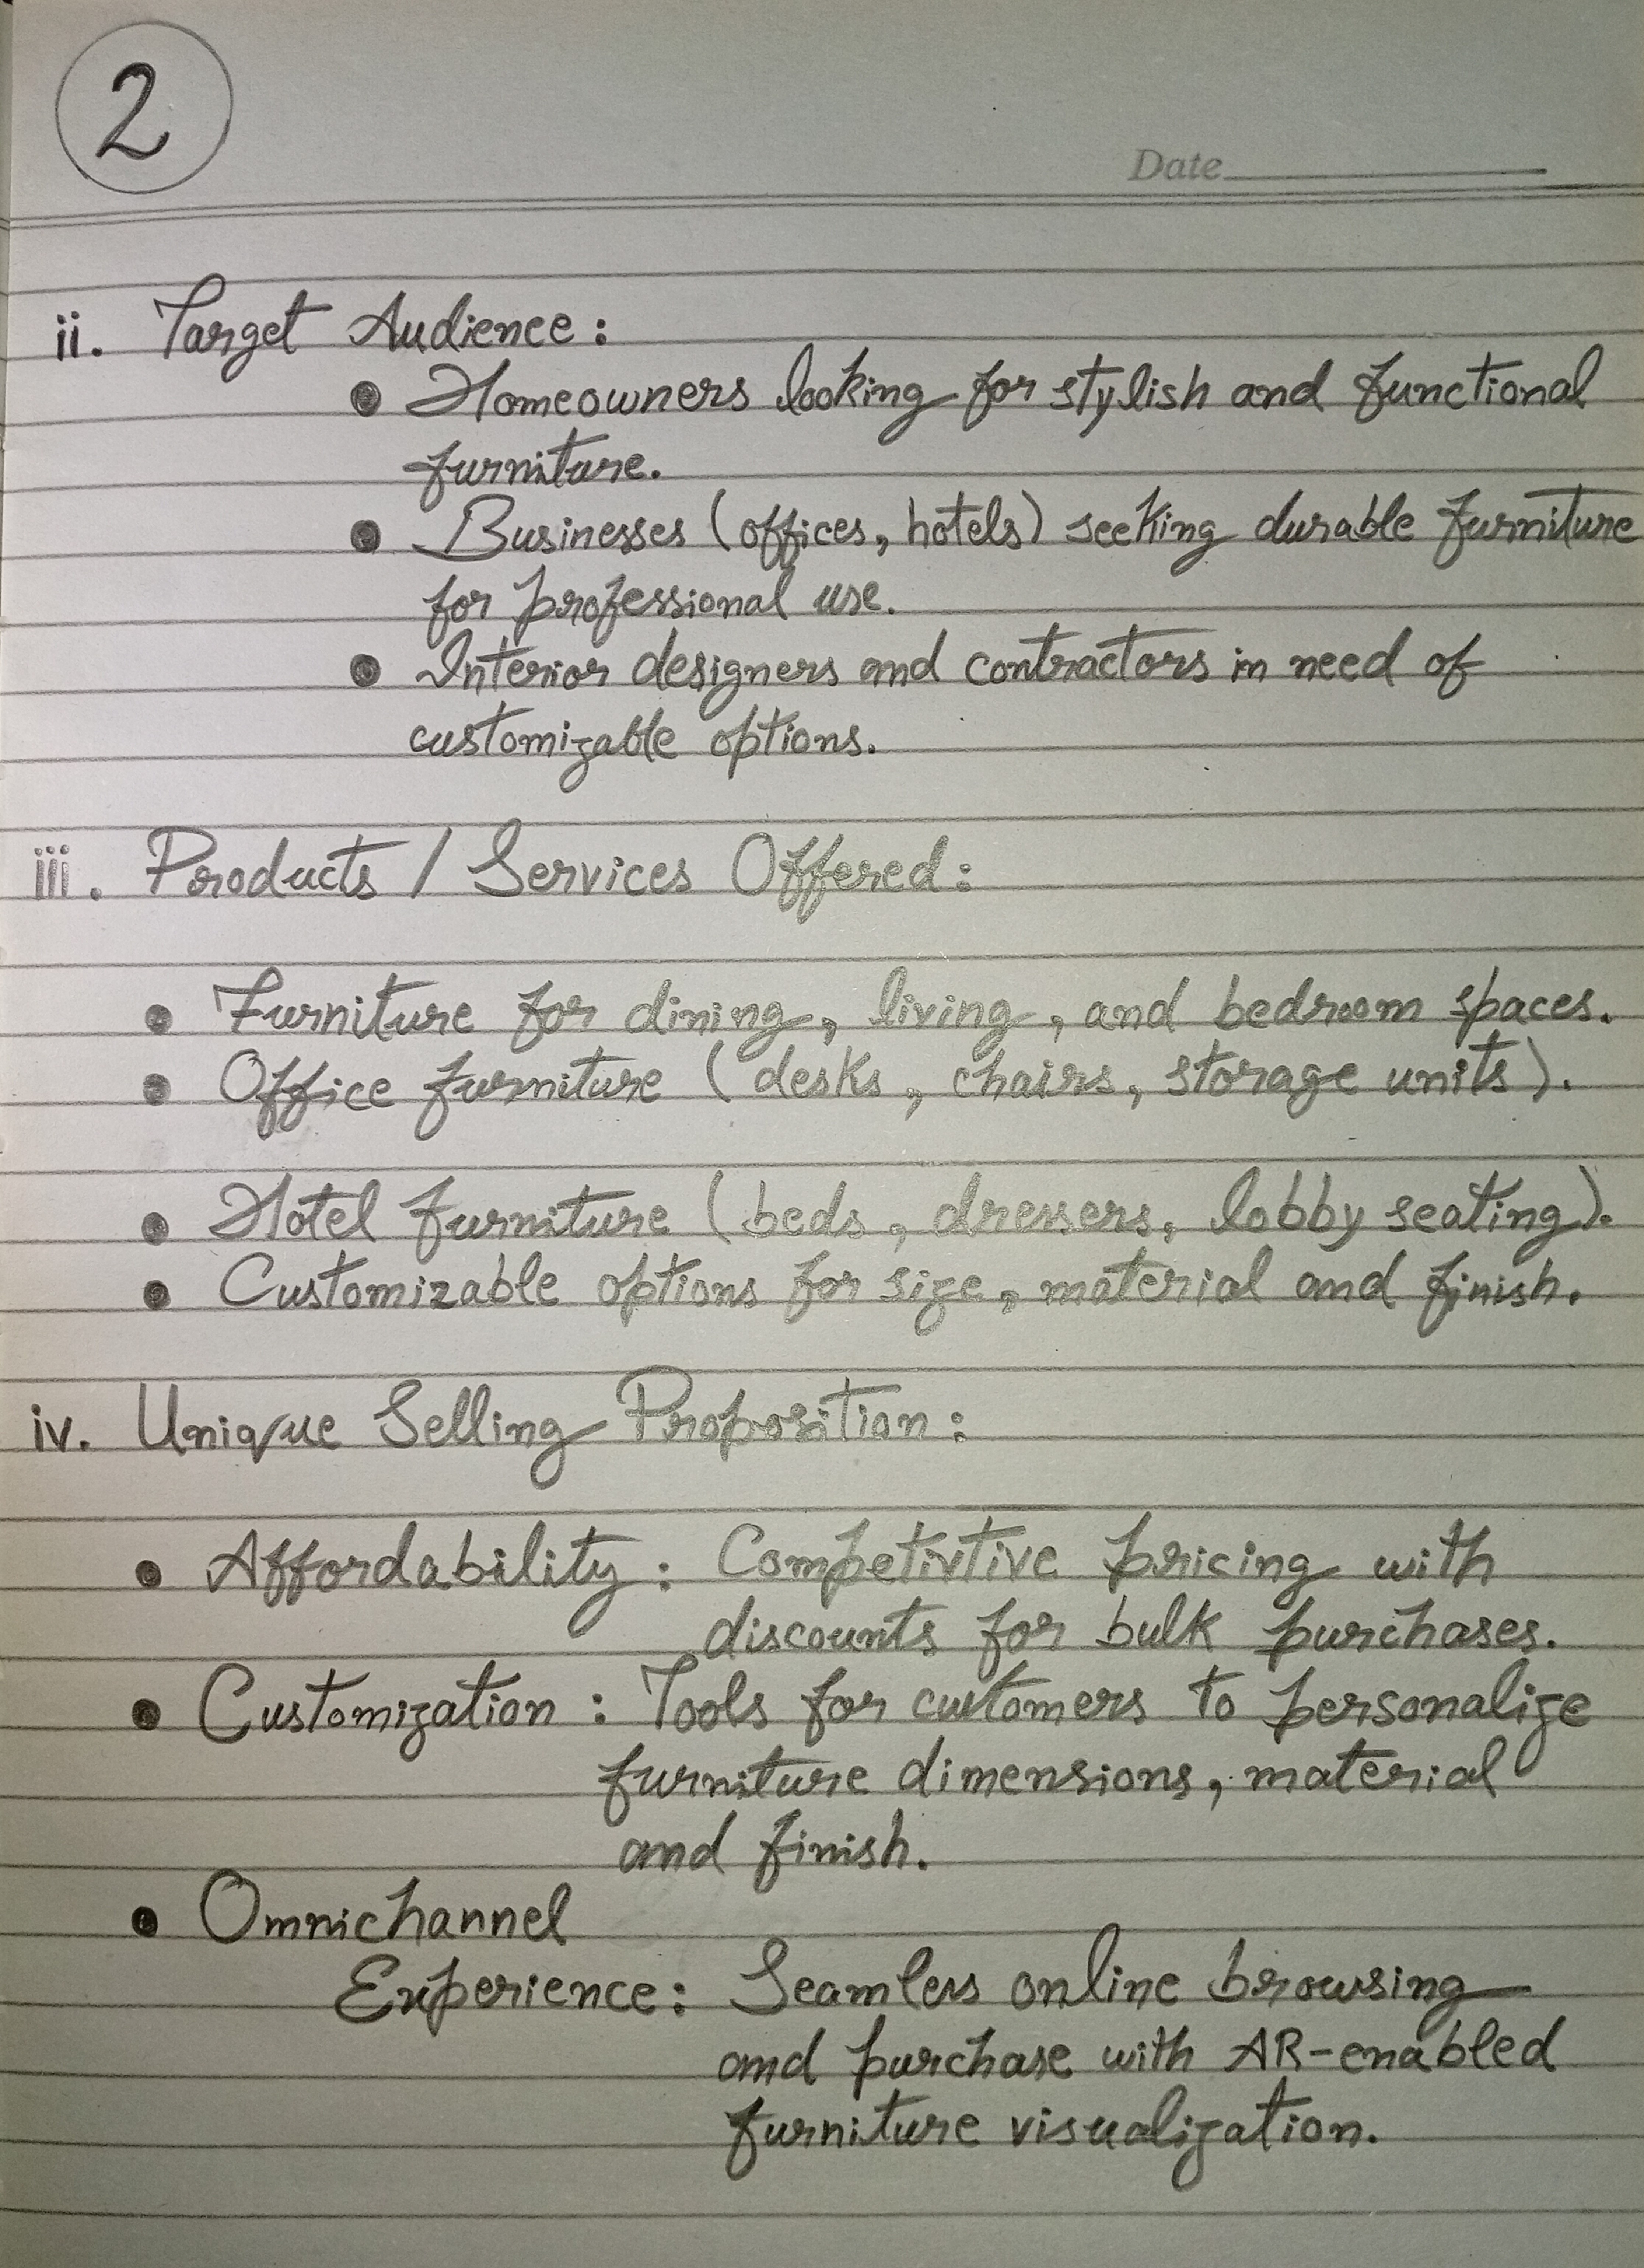 2
Date
ii. Target Audience:
• Homeowners looking for stylish and functional
furniture.
• Businesses (offices, hotels) seeking durable furniture
for professional use.
• Interior designers and contractors in need of
customizable options.
iii. Products / Services Offered:
• Furniture for dining, living, and bedroom spaces.
• Office furniture (desks, chairs, storage units).
• Hotel furniture (beds, dressers, lobby seating).
• Customizable options for size, material and finish.
iv. Unique Selling Proposition:
• Affordability: Competivtive pricing with
discounts for bulk purchases.
• Customization: Tools for customers to personalize
furniture dimensions, material
and finish.
• Omnichannel
Experience: Seamless online browsing
and purchase with AR-enabled
furniture visualization.